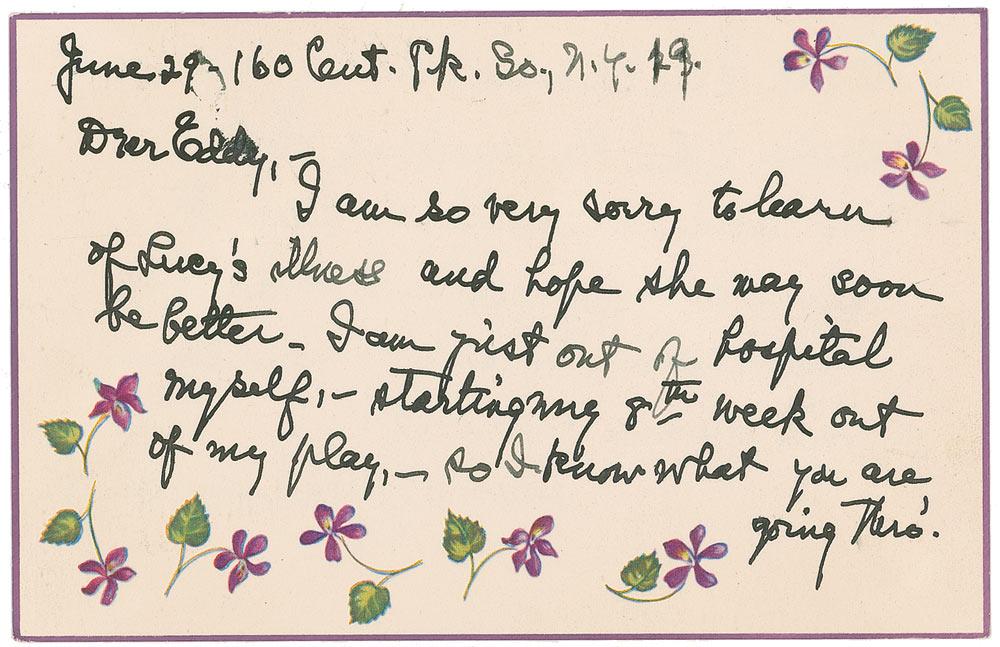 June 29, 160 Cent. Pk. So., N.Y. 19.
Dear Eddy, –
I am so very sorry to learn
of Lucy's illness and hope she may soon
be better – I am just out of hospital
myself, – starting my 8th week out
of my play, – so I know what you are
going thro'.